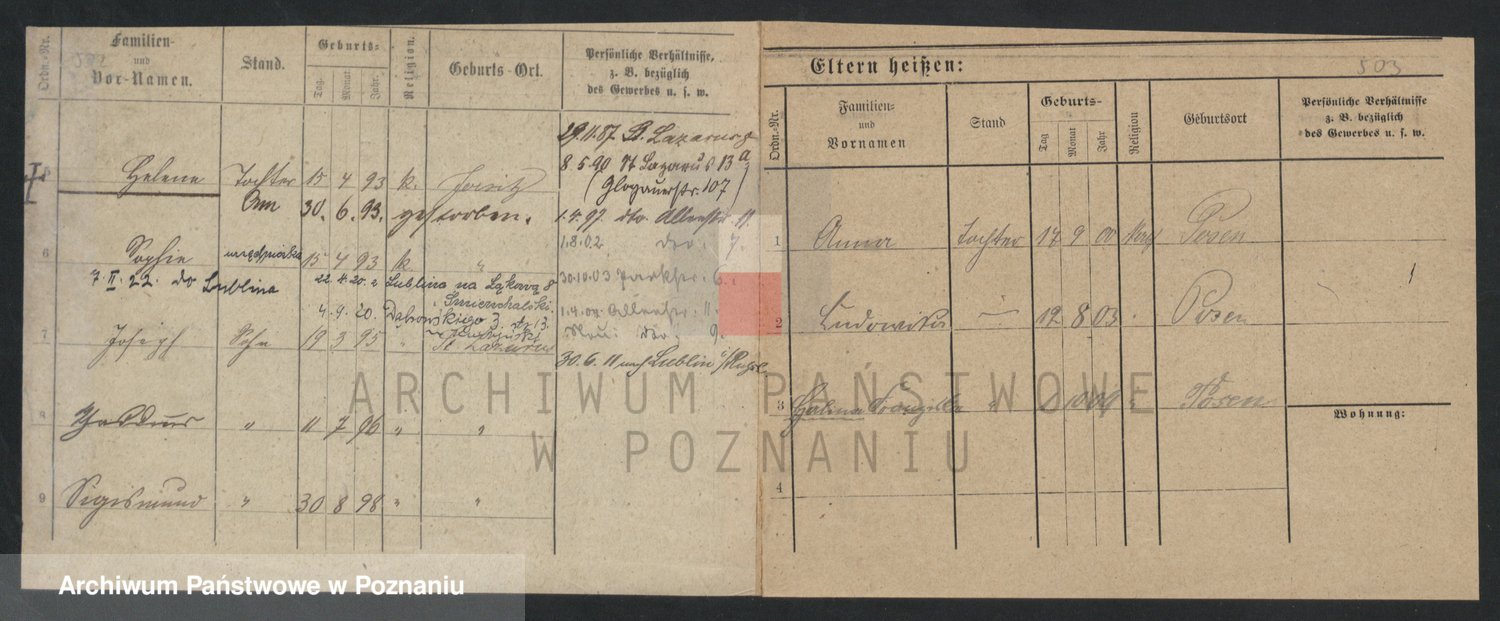 502
Ordn.-Nr.
Familien-
und
Vor-Namen.
Stand.
Geburts-
Tag. Monat Jahr.
Religion.
Geburts-Ort.
Persönliche Verhältnisse,
z. B. bezüglich
des Gewerbes u. s. w.
29.11.87. St. Lazarus 8
8.5.90 St Lazarus 13a
(Glogauerstr. 107)
5 Helene Tochter 15 4 93 k. Jersitz
Am 30. 6. 93. gestorben.
1.4.97. dto. Allenstr 11.
1.8.02 do. 7.
6 Sophie 15 4 93 k. "
7. II. 22. do Lublina
22.4.20. z Lublina na Łąkową 8
30.10.03 Parkstr. 6.
4.9.20. Dąbrowskiego 3
1.4.04 11.
7 Joseph Sohn 19 3 95 " St. Lazarus
do. 9.
30.6.11 nach Lublin
8 " 11 7 96 " "
9 Sigismund " 30 8 98 " "
Eltern heißen:
503
Ordn.-Nr.
Familien-
und
Vornamen
Stand
Geburts-
Tag Monat Jahr
Religion
Geburtsort
Persönliche Verhältnisse
z. B. bezüglich
des Gewerbes u. s. w.
1 Anna Tochter 17 9 00 Posen
2 Ludowika 12 8 03 Posen
3 Halina Posen
Wohnung:
4
ARCHIWUM PAŃSTWOWE
W POZNANIU
Archiwum Państwowe w Poznaniu